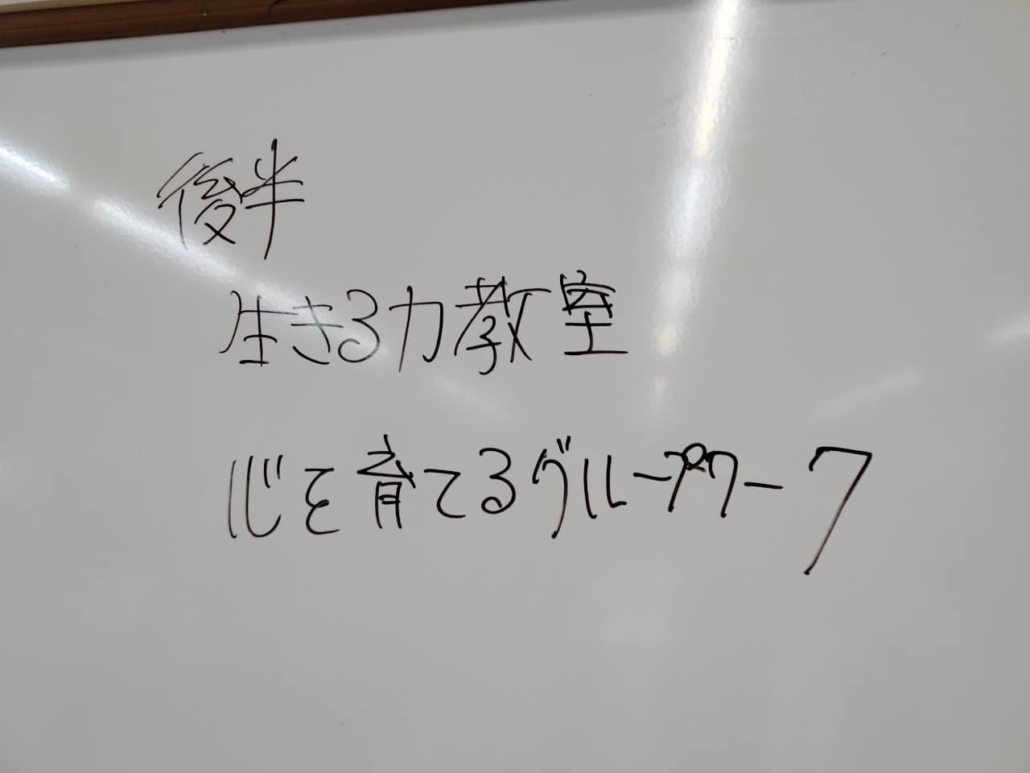 後半
生きる力教室
心を育てるグループワーク